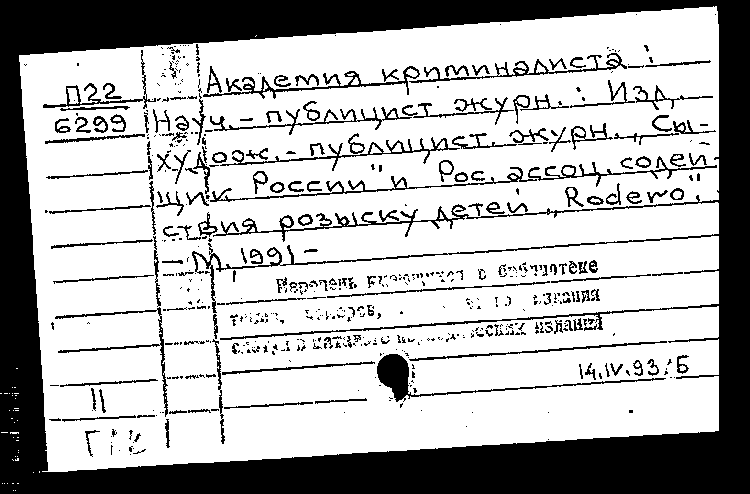 П22
6299
Академия криминалиста :
Науч.-публицист. журн. : Изд.
худож.-публицист. журн. „Сы-
щик России" и Рос. ассоц. содей-
ствия розыску детей „Rodero".
— М., 1991 —
Перечень имеющихся в библиотеке
томов, номеров, издания
смотри в каталоге периодических изданий
14.IV.93/Б
II